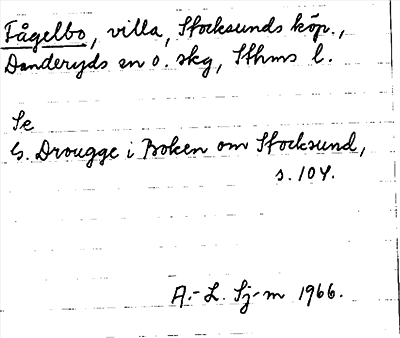 Fågelbo, villa, Stocksunds köp.,
Danderyds sn o. skg, Sthms l.
Se
G. Drougge i Boken om Stocksund,
s. 104.
A.-L. Sj-m 1966.